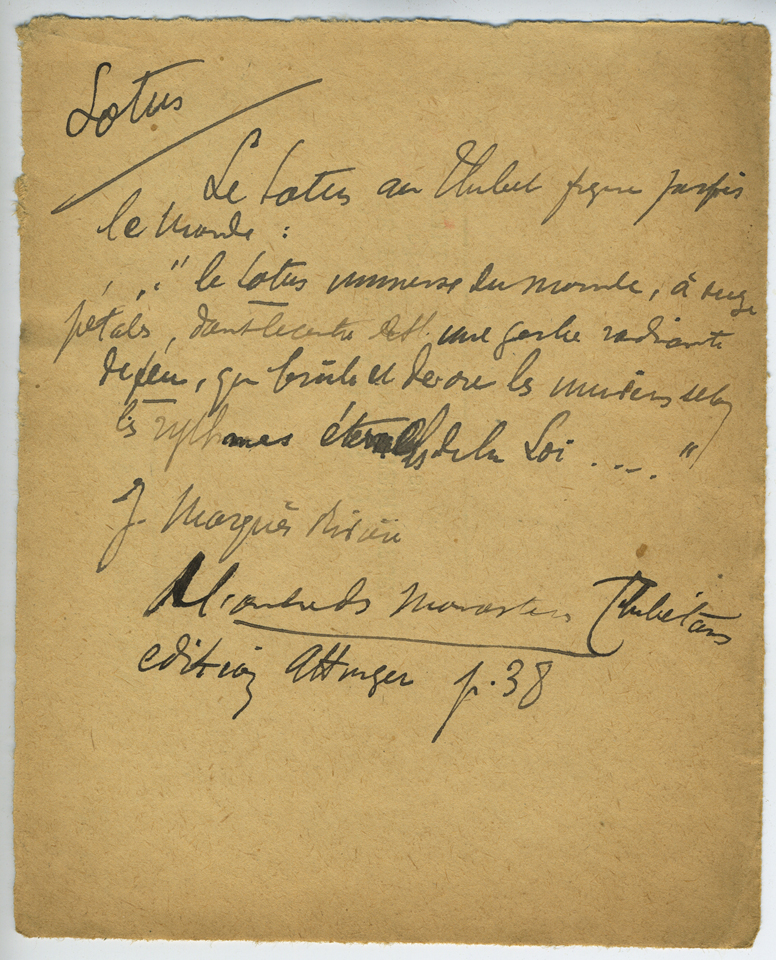 Lotus
Le Lotus au Thibet figure parfois
le Monde :
" le Lotus immense du monde, à onze
pétales, dont le centre est une gerbe radiante
de feu, qui brûle et dévore les univers selon
les rythmes éternels de la Loi .... "
J. Marquès Rivière
A l'ombre des Monastères Thibétains
edition Attinger p. 38